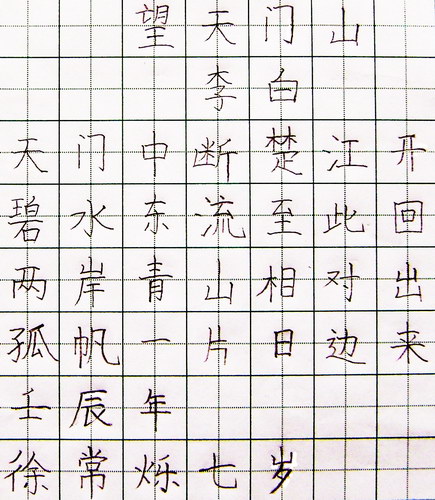 望天门山
李白
天门中断楚江开
碧水东流至此回
两岸青山相对出
孤帆一片日边来
壬辰年
徐常烁七岁